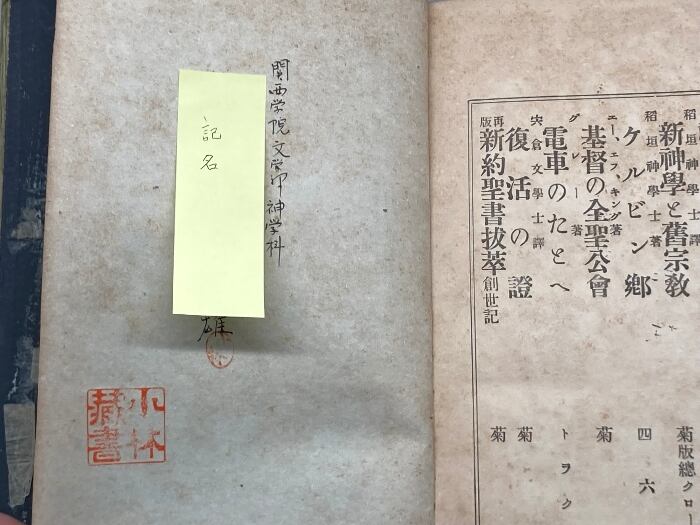 関西学院文学部神学科
記名
雄
小林
蔵書
稻垣神學士譯
新神學と舊宗教
菊版總クロー
稻垣神學士著
ケルビン鄕
四六
エー、エフ、キング著
基督の全聖公會
菊
グレー著
電車のたとへ
トヲク
宍倉文學士譯
復活の證
菊
再版
新約聖書拔萃創世記
菊